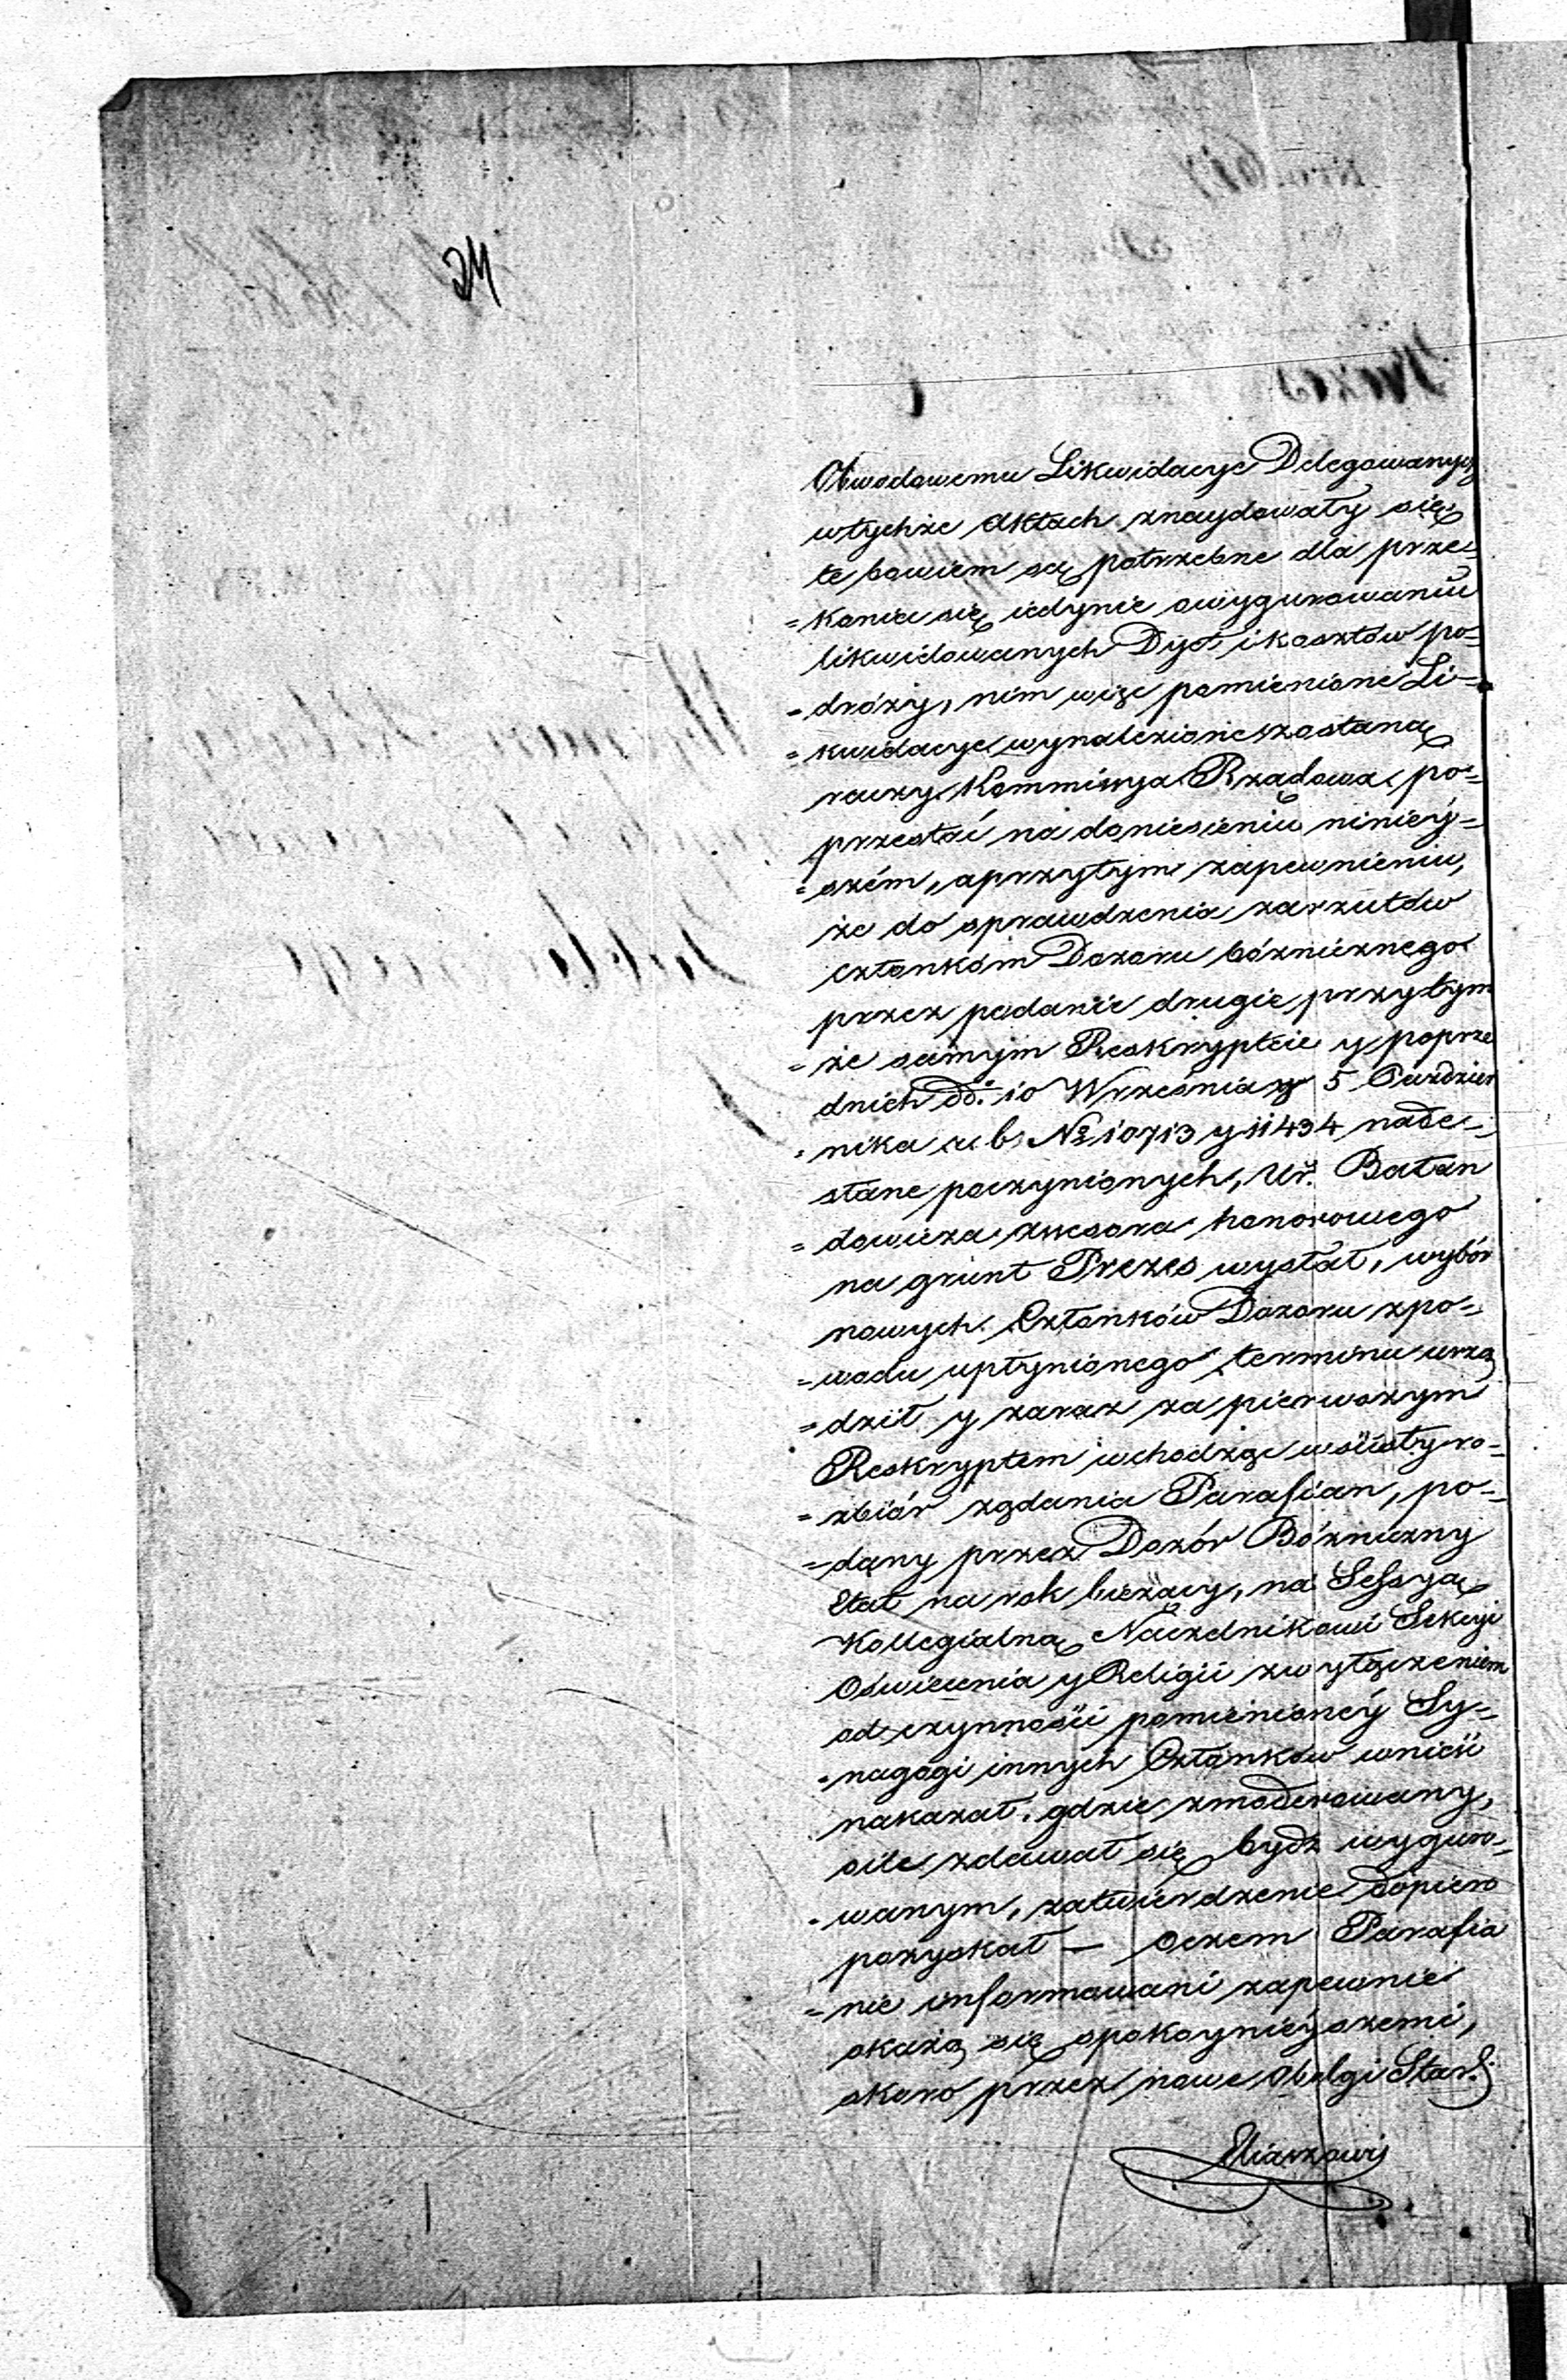 24
Obwodowemu Likwidacye Delegowanych
wtychże Aktach znaydowały się,
te bowiem są potrzebne dla prze-
=konia się iedynie owygurowaniu
likwidowanych Dyot i kosztów po-
=dróży, nim więc pomienione Li-
=kwidacye wynalezione zostaną
raczy Kommissya Rządowa po-
przestać na doniesieniu niniey-
=szém, aprzytym zapewnieniu,
że do sprawdzenia zarzutów
członkóm Dozoru bóżnicznego
przez podanie drugie, przytym
=że samym Reskrypcie y poprze
dnich dd: 10 Września y 5 Paździer
=nika a. b. No 10713 y 11434 nade-
słane poczynionych, Ur. Bałan
=dowicza assesora honorowego
na grunt Prezes wysłał, wybór
nowych Członków Dozoru zpo-
=wodu upłynionego terminu urzą
=dził y zaraz za pierwszym
Reskryptem wchodząc wścisły ro-
=zbiór żądania Parafian, po-
=dany przez Dozór Bóżniczny
Etat na rok bieżący, na Sessyą
Kollegialną Naczelnikowi Sekcyi
Oświecenia y Religii zwyłączeniem
od czynności pomienioney Sy-
=nagogi innych Członków wnieść
nakazał, gdzie zmoderowany,
oile zdawał się bydź wyguro-
=wanym, zatwierdzenie dopiero
pozyskał — oczem Parafia
=nie informowani zapewnie
okażą się spokoynieyszemi,
skoro przez nowe Obelgi Star.
Eliaszowi